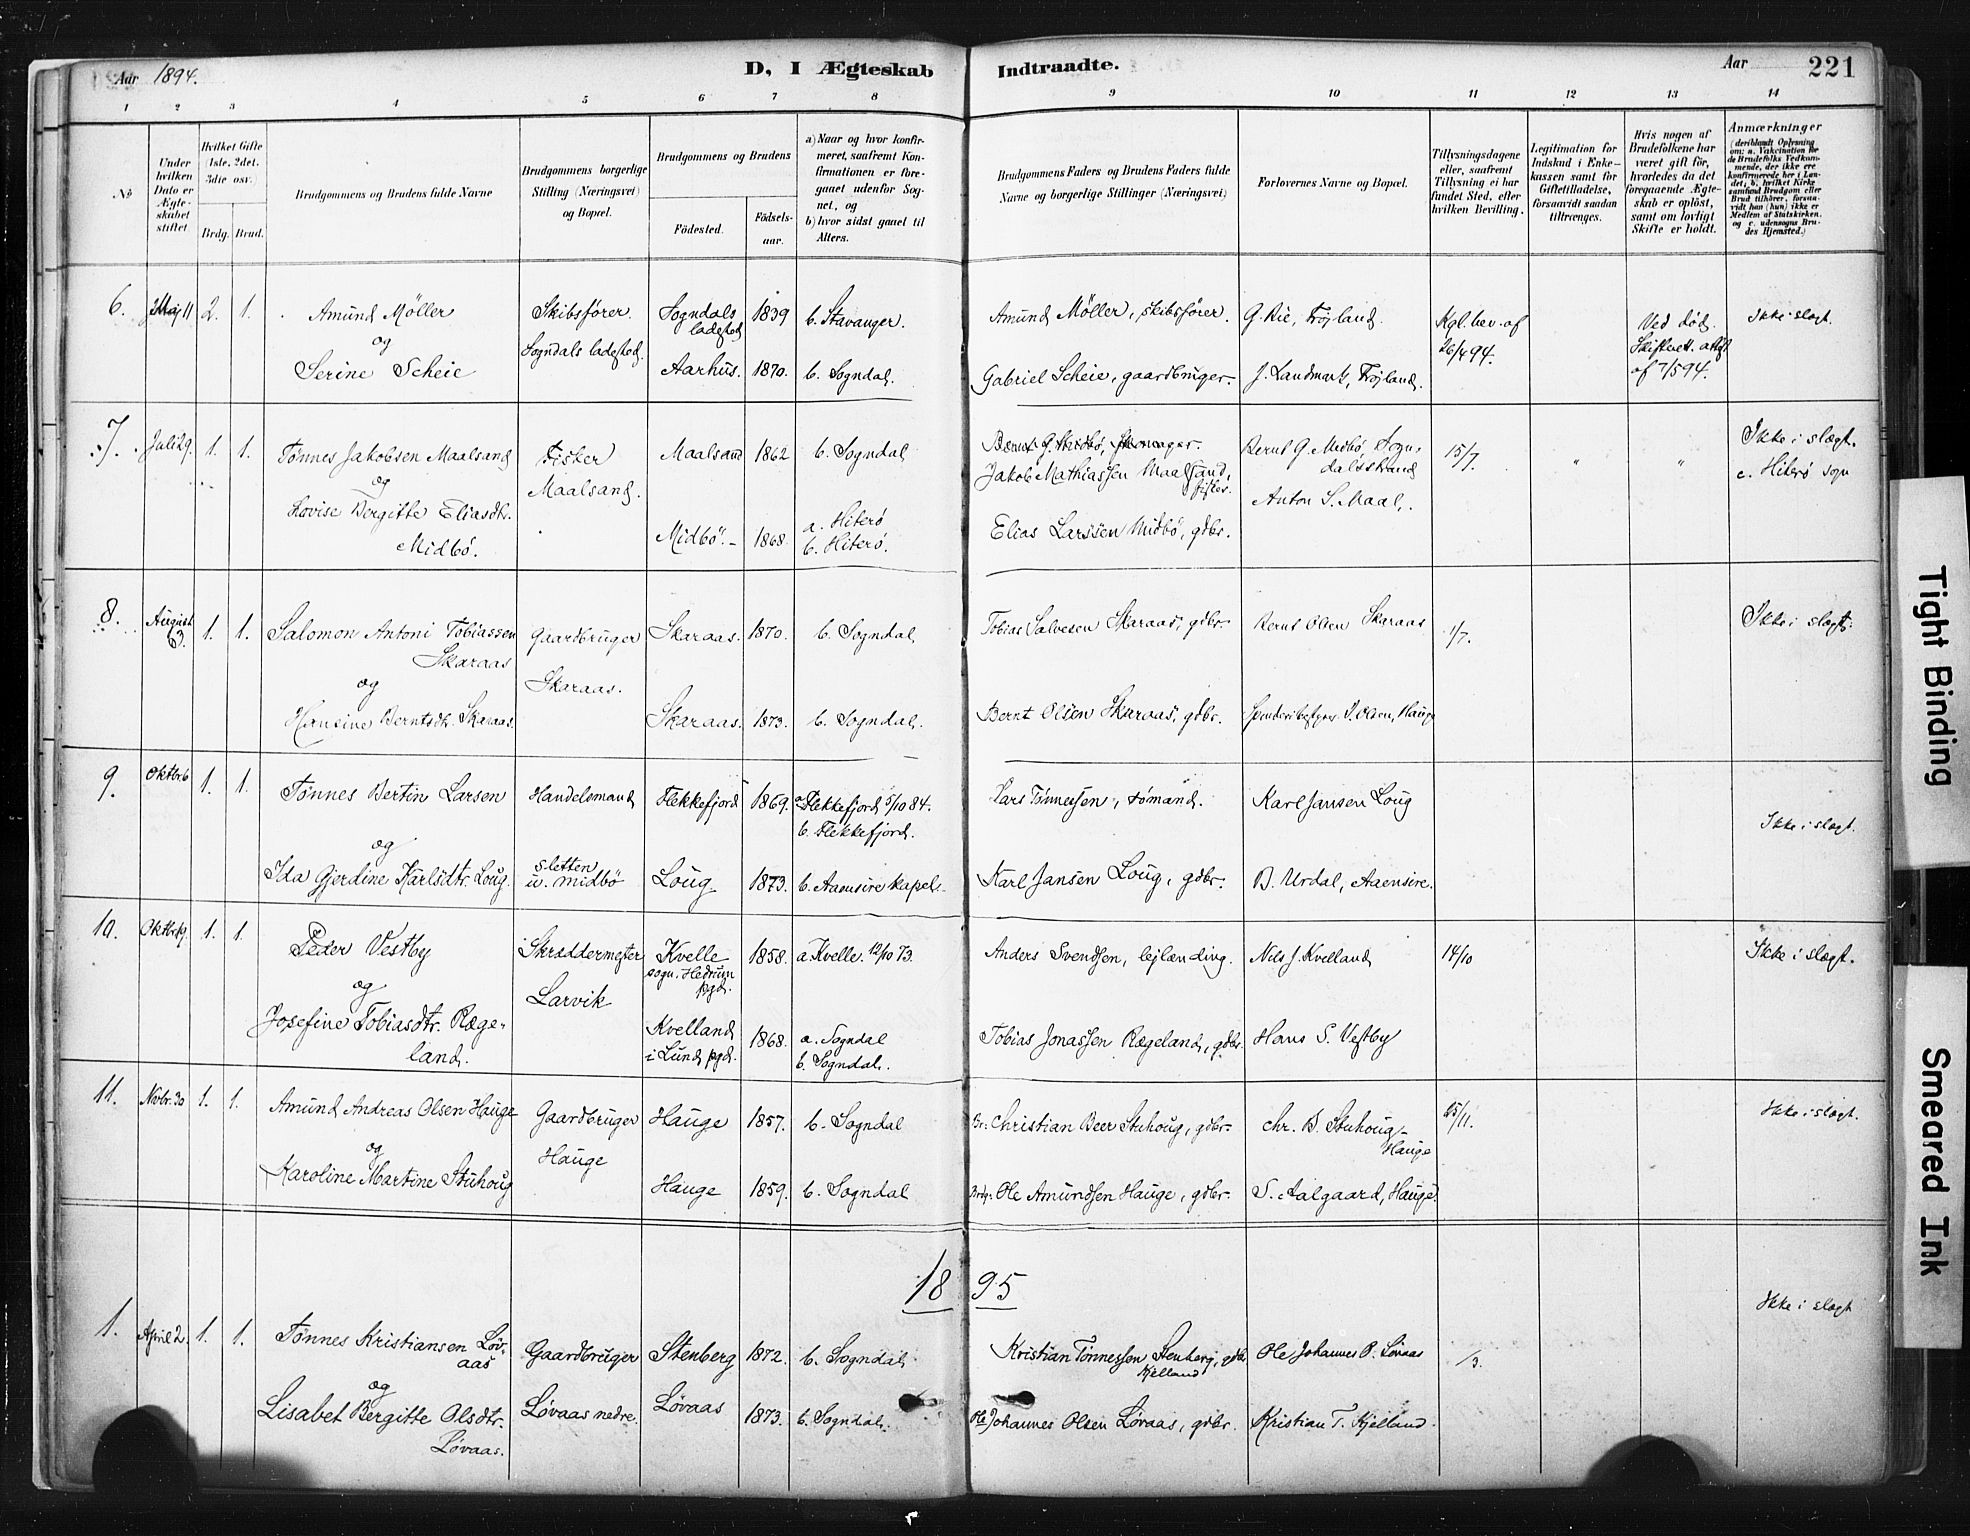 Aar 1894.
D, I Ægteskab Indtraadte.
Aar 221
1 2 3 4 5 6 7 8 9 10 11 12 13 14
No
Under hvilken Dato er Ægteskabet stiftet
Hvilket Gifte (1ste, 2det, 3die osv.)
Brdg. Brud.
Brudgommens og Brudens fulde Navne
Brudgommens borgerlige Stilling (Næringsvei) og Bopæl.
Brudgommens og Brudens
Födested.
Födselsaar.
a) Naar og hvor konfirmeret, saafremt Konfirmationen er foregaaet udenfor Sognet, og
b) hvor sidst gaaet til Alters.
Brudgommens Faders og Brudens Faders fulde Navne og borgerlige Stillinger (Næringsvei)
Forlovernes Navne og Bopæl.
Tillysningsdagene eller, saafremt Tillysning ei har fundet Sted, efter hvilken Bevilling.
Legitimation for Indskud i Enkekassen samt for Giftetilladelse, forsaavidt saadan tiltrænges.
Hvis nogen af Brudefolkene har været gift för, hvorledes da det foregaaende Ægteskab er oplöst, samt om lovligt Skifte er holdt.
Anmærkninger (deriblandt Oplysning om: a. Vakcination for de Brudefolks Vedkommende, der ikke ere konfirmerede her i Landet, b. hvilket Kirkesamfund Brudgom eller Brud tilhörer, forsaavidt han (hun) ikke er Medlem af Statskirken, og c. udensogns Brudes Hjemsted.)
6. Maj 11 2. 1. Amund Möller
og
Serine Scheie
Skibsfører.
Sogndals ladested.
Sogndals ladested 1839 b. Stavanger.
Aarhus. 1870. b. Sogndal.
Amund Möller, skibsfører.
Gabriel Scheie, gaardbruger.
G. Rie, Trøjland.
J. Landmark, Trøjland.
Kgl. bev. af
26/4 94.
Ved død.
Skifteret. attest
af 7/5 94.
Ikke i slægt.
7. Juli 29. 1. 1. Tønnes Jakobsen Maalsand
og
Lovise Bergitte Eliasdtr.
Midbö.
Fisker
Maalsand.
Maalsand 1862 b. Sogndal
Midbö. 1868. a. Hiterø
b. Hiterø.
Jakob Mathiassen Maalsand,
fisker.
Elias Larssen Midbö, gdbr.
Bernt G. Midbö, Sogndalsstrand
Anton S. Maal.
15/7. " "
Ikke i slægt.
c. Hiterø sogn
8. August 1. 1. Salomon Antoni Tobiassen
Skaraas
og
Hansine Berntsdtr. Skaraas
Gaardbruger
Skaraas.
Skaraas. 1870. b. Sogndal
Skaraas. 1873. b. Sogndal.
Tobias Salvesen Skaraas, gdbr.
Bernt Olsen Skaraas, gdbr.
Bernt Olsen Skaraas
Olsen, Hauge
1/7.
Ikke i slægt.
9. Oktbr. 6 1. 1. Tønnes Bertin Larsen
og
Ida Gjerdine Karlsdtr. Loug.
Handelsmand
Sletten
u. Midbö
Flekkefjord 1869. a. Flekkefjord 5/10 84.
b. Flekkefjord.
Loug 1873. b. Aaensire kapel.
Lars Tønnessen, sømand.
Karl Jansen Loug, gdbr.
Karl Jansen Loug
B. Urdal, Aaensire.
Ikke i slægt.
10. Oktbr. 19. 1. 1. Peder Vestby
og
Josefine Tobiasdtr. Rægeland.
Skræddermester
Larvik
Kvelle
sogn. Hedrum
pgd. 1858. a. Kvelle. 12/10 73.
Kvelland
i Lund pgd. 1868. a. Sogndal
b. Sogndal.
Anders Svendsen, lejlænding.
Tobias Jonassen Rægeland, gdbr.
Nils J. Kvelland
Hans S. Vestby
14/10
Ikke i slægt.
11. Novbr. 30 1. 1. Amund Andreas Olsen Hauge
og
Karoline Martine Stuhoug
Gaardbruger
Hauge
Hauge 1857. b. Sogndal
Hauge 1859. b. Sogndal
Br: Christian Beer Stuhoug, gdbr.
Brdg: Ole Amundsen Hauge, gdbr.
Chr. B. Stuhoug
Hauge
S. Aalgaard, Hauge
25/11.
Ikke i slægt.
1895
1. April 2. 1. 1. Tønnes Kristiansen Løvaas
og
Lisabet Bergitte Olsdtr.
Løvaas.
Gaardbruger
Løvaas nedre.
Stenberg 1872. b. Sogndal
Løvaas 1873. b. Sogndal.
Kristian Tønnessen Stenberg, gdbr.
Kjelland
Ole Johannes Olsen Løvaas, gdbr.
Ole Johannes O. Løvaas
Kristian T. Kjelland.
/3.
Ikke i slægt
Tight Binding
Smeared Ink